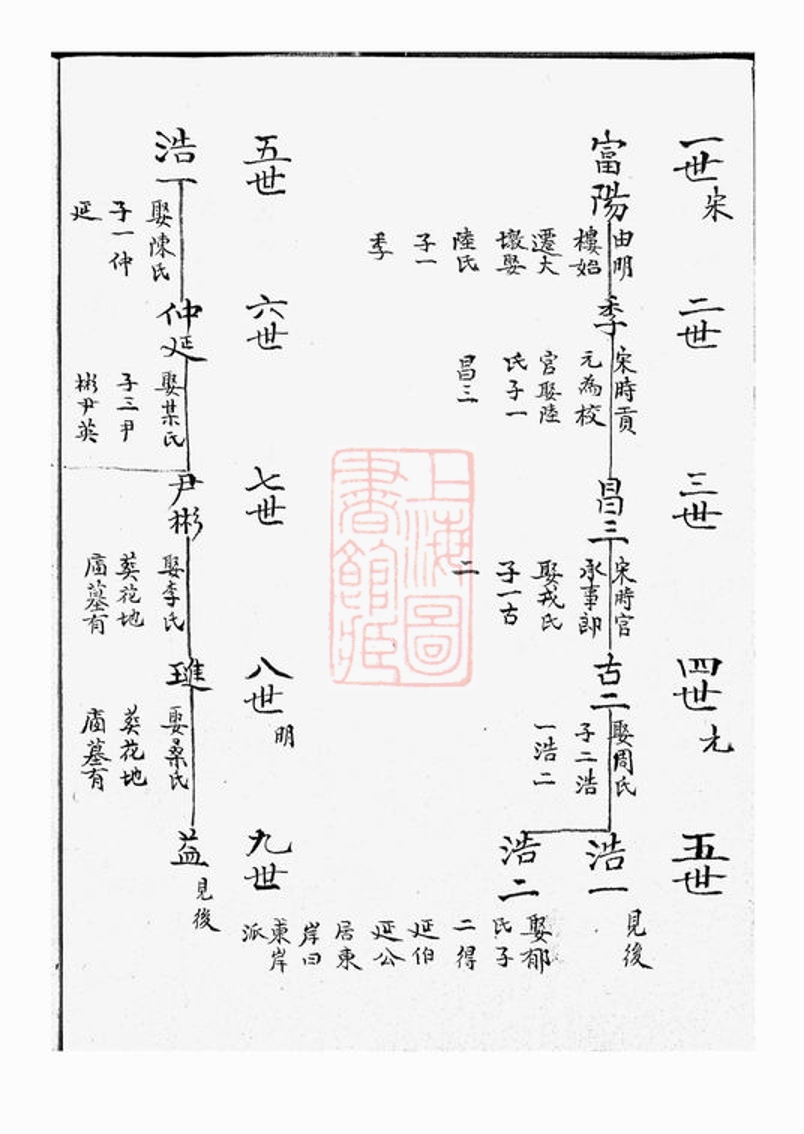 一世 宋
富陽
由明
樓始
遷大
墩娶
陸氏
子一
季
二世
季
宋時貢
元為校
官娶陸
氏子一
昌三
三世
昌三
宋時官
承事郎
娶戎氏
子一古
二
四世 元
古二
娶周氏
子二浩
一浩二
五世
浩一
見後
浩二
娶郁
氏子
二得
延伯
延公
居東
岸曰
東岸
派
五世
浩一
娶陳氏
子一仲
延
六世
仲延
娶某氏
子三尹
彬尹英
七世
尹彬
娶李氏
葬花地
廟墓有
八世 明
璡
娶桑氏
葬花地
廟墓有
九世
益
見後
上海圖
書館藏